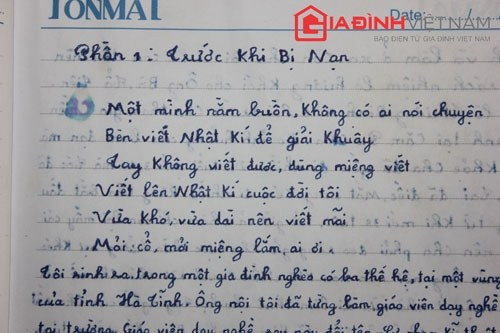 TONMAT
GIAĐÌNHVIETNAM
BÁO ĐIỆN TỬ GIA ĐÌNH VIỆT NAM
Date: / /
Phần 1: Trước Khi Bị Nạn
Một mình nằm buồn, không có ai nói chuyện
Bèn viết Nhật Kí để giải Khuây
Tay Không viết được, dùng miệng viết
Viết lên Nhật Kí cuộc đời tôi
Vừa khó, vừa dài nên viết mãi
Mỏi cổ, mỏi miệng lắm, ai ơi.
Tôi sinh ra trong một gia đình nghèo có ba thế hệ, tại một vùng
của tỉnh Hà Tĩnh. Ông nội tôi đã từng làm giáo viên dạy nghề
tại trường Giáo viên dạy nghề sau này đổi tên